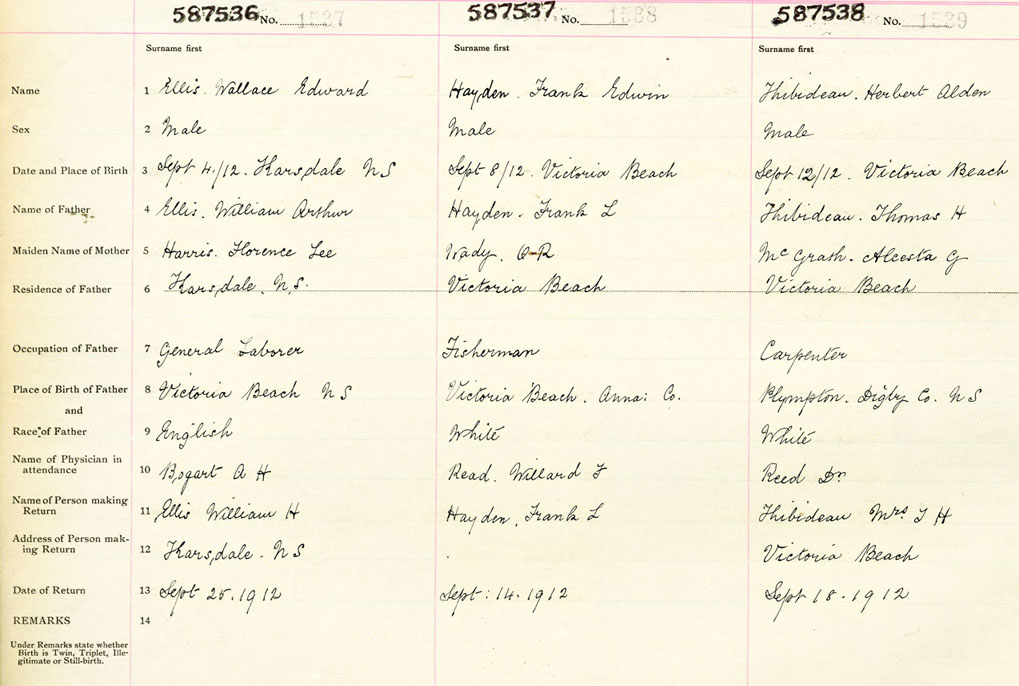 587536 No. 1537 587537 No. 1538 587538 No. 1539
Surname first Surname first Surname first
Name 1 Ellis. Wallace Edward Hayden. Frank Edwin Thibideau. Herbert Alden
Sex 2 Male Male Male
Date and Place of Birth 3 Sept 4/12. Karsdale N S Sept 8/12. Victoria Beach Sept 12/12. Victoria Beach
Name of Father 4 Ellis. William Arthur Hayden. Frank L Thibideau. Thomas H
Maiden Name of Mother 5 Harris. Florence Lee Wady. O-R McGrath. Alcesta G
Residence of Father 6 Karsdale. N.S. Victoria Beach Victoria Beach
Occupation of Father 7 General Laborer Fisherman Carpenter
Place of Birth of Father 8 Victoria Beach N S Victoria Beach. Anna: Co. Plympton. Digby Co. N S
and
Race of Father 9 English White White
Name of Physician in
attendance 10 Bogart A H Read. Willard F Reed Dr.
Name of Person making
Return 11 Ellis William H Hayden. Frank L Thibideau Mrs T H
Address of Person mak-
ing Return 12 Karsdale. N S Victoria Beach
Date of Return 13 Sept 25. 1912 Sept: 14. 1912 Sept 18. 1912
REMARKS 14
Under Remarks state whether
Birth is Twin, Triplet, Ille-
gitimate or Still-birth.